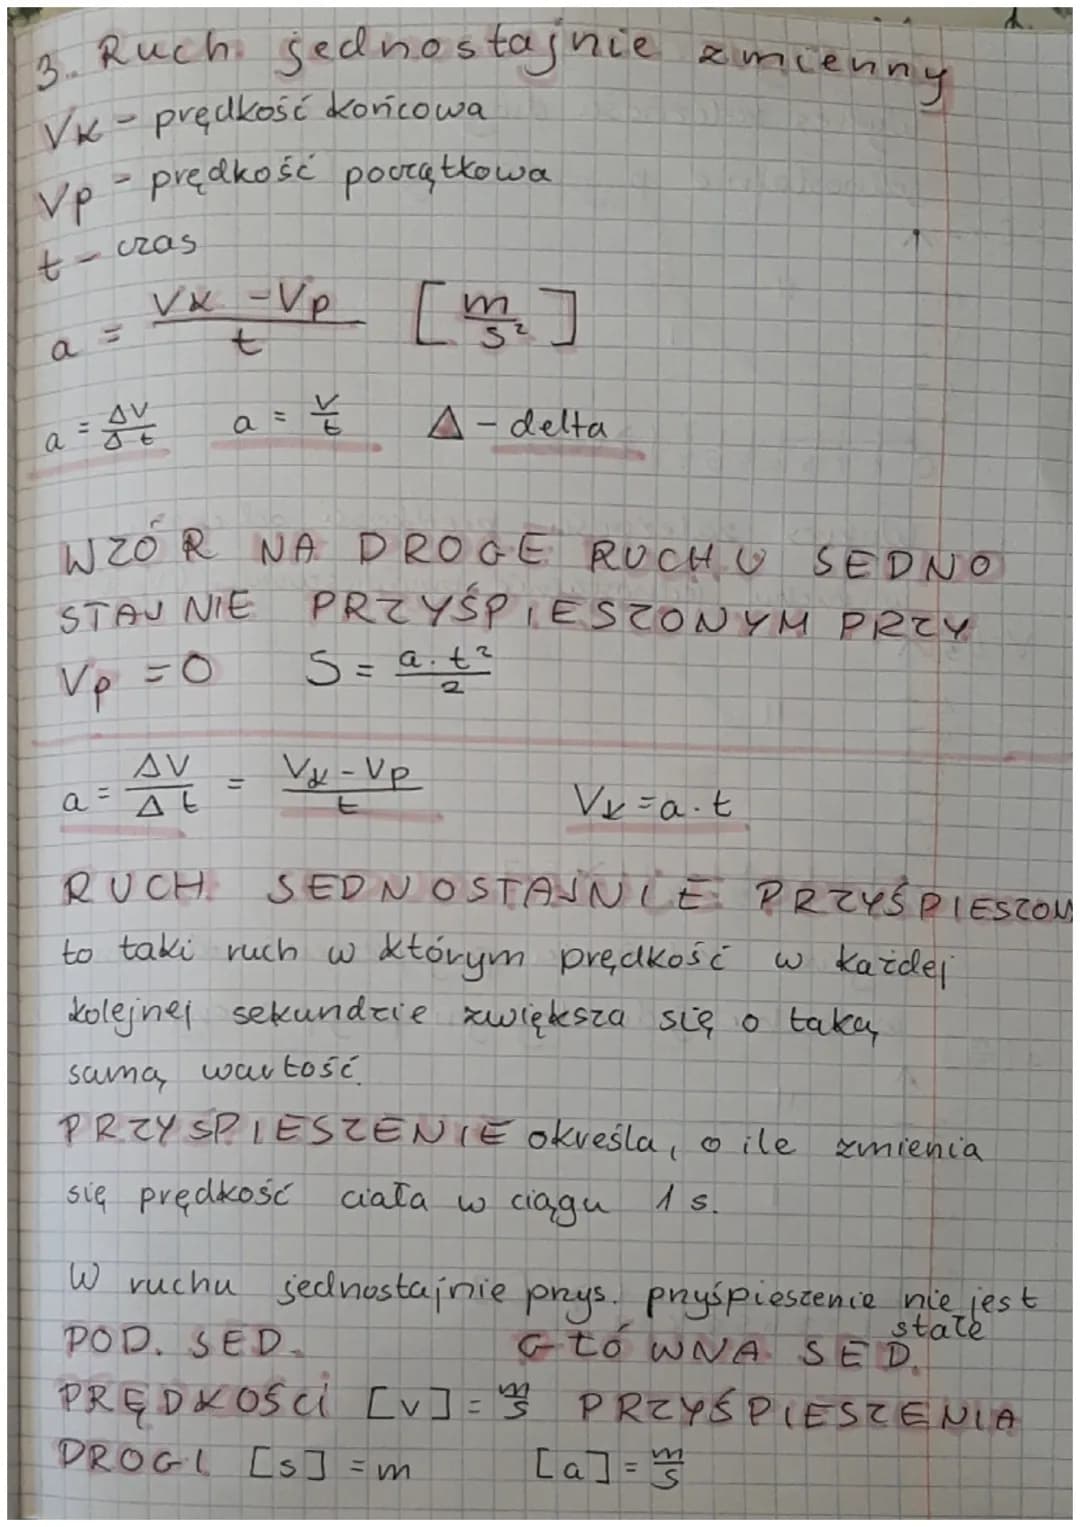 3. Ruch jednostajnie zmienny
Vk - prędkość końcowa
Vp - prędkość początkowa
t - czas
a = Vk - Vp / t [m/s²]
a = ΔV/Δt a = V/t Δ - delta
WZÓR NA DROGE RUCHU JEDNO
STAJNIE PRZYŚPIESZONYM PRZY
Vp = 0 S = a·t²/2
a = ΔV/Δt = Vk - Vp/t Vk = a·t
RUCH JEDNOSTAJNIE PRZYŚPIESZON
to taki ruch w którym prędkość w każdej
kolejnej sekundzie zwiększa się o taką
samą wartość.
PRZYSPIESZENIE określa, o ile zmienia
się prędkość ciała w ciągu 1 s.
W ruchu jednostajnie przys. przyśpieszenie nie jest
stałe
POD. JED. GŁÓWNA JED.
PRĘDKOŚCI [v] = m/s PRZYŚPIESZENIA
DROGI [s] = m [a] = m/s